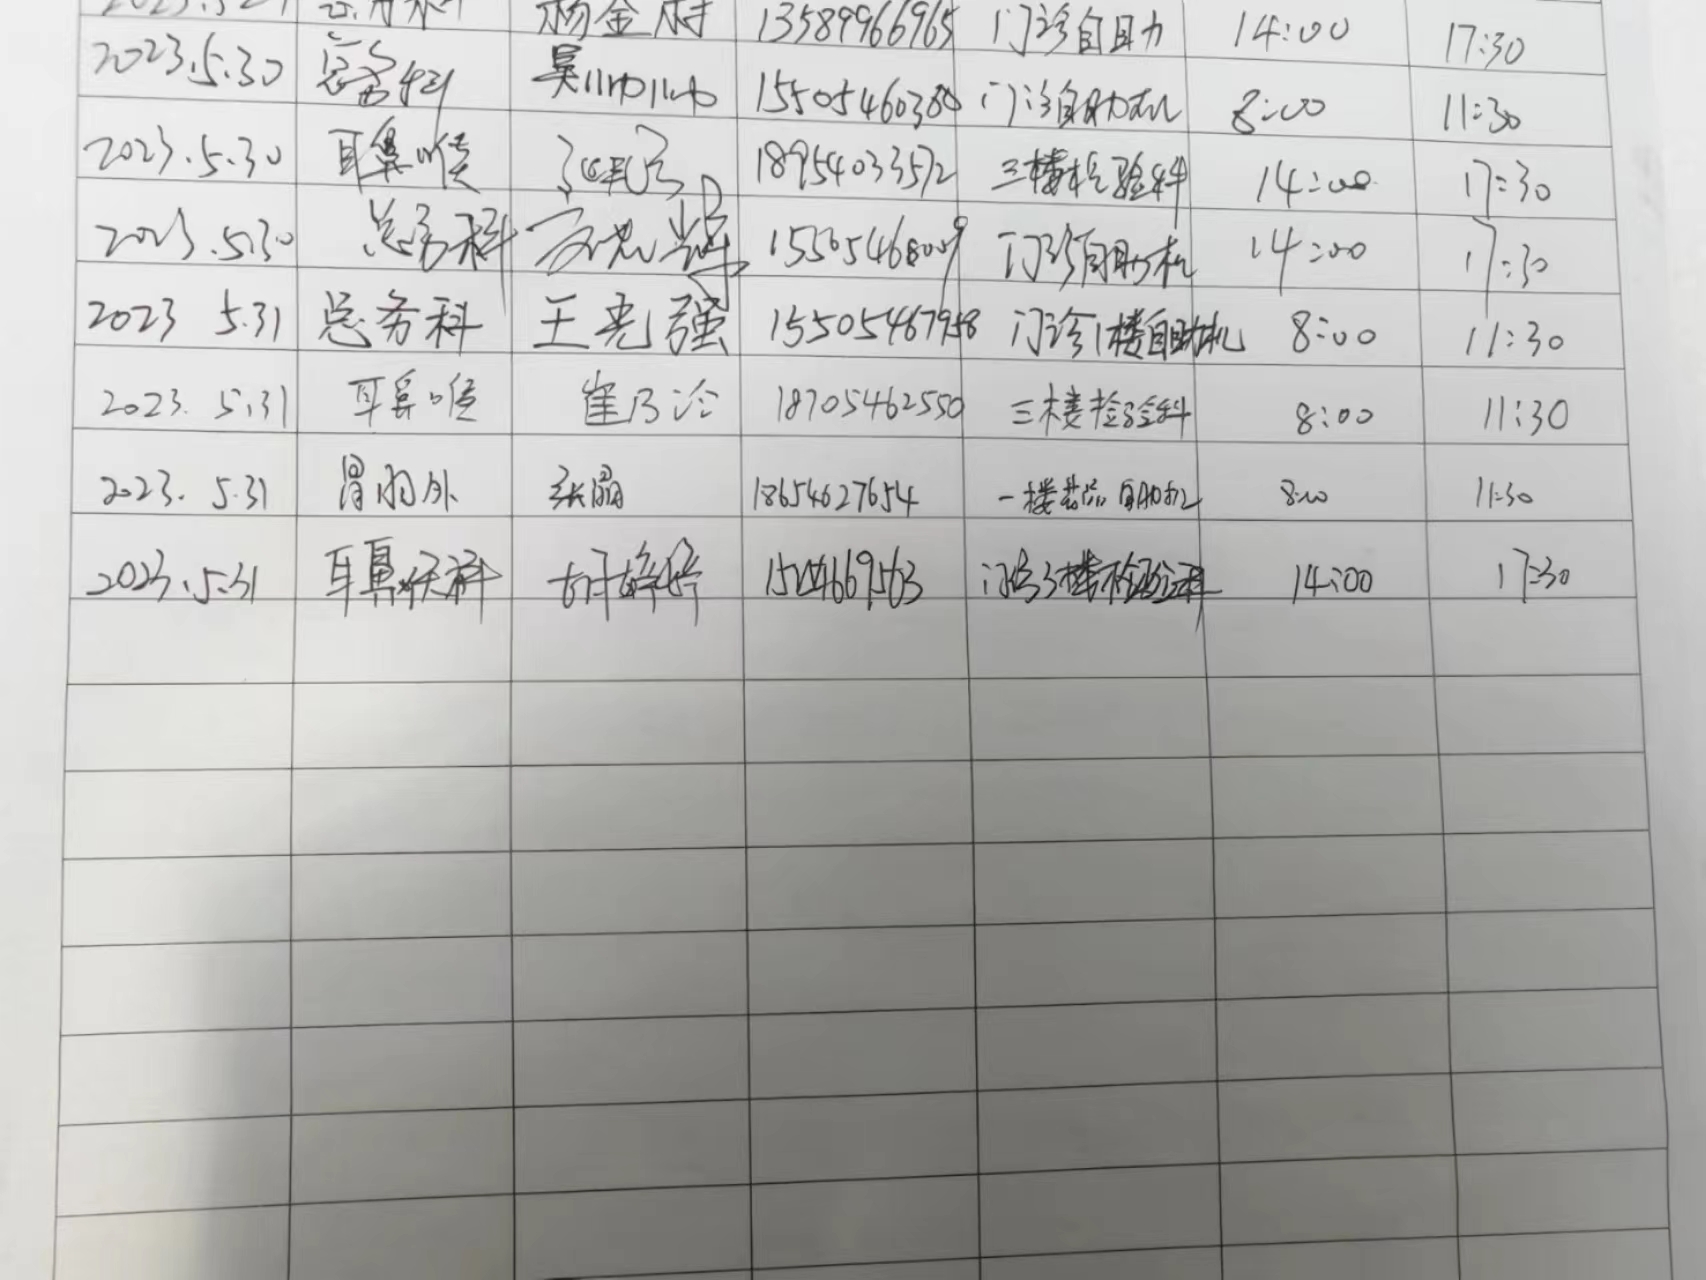 杨金树 13589966965 门诊自目力 14:00 17:30
2023.5.30 总务科 吴姗姗 15505460380 门诊自助机 8:00 11:30
2023.5.30 耳鼻喉 18954033572 三楼检验科 14:00 17:30
2023.5.30 总务科 15505468009 门诊自助机 14:00 17:30
2023 5.31 总务科 王光强 15505467958 门诊1楼自助机 8:00 11:30
2023. 5.31 耳鼻喉 崔乃 18705462550 三楼检验科 8:00 11:30
2023. 5.31 胃肠外 张晶 18654627654 一楼 自助机 8:00 11:30
2023.5.31 耳鼻喉科 胡婷婷 门诊3楼检验科 14:00 17:30